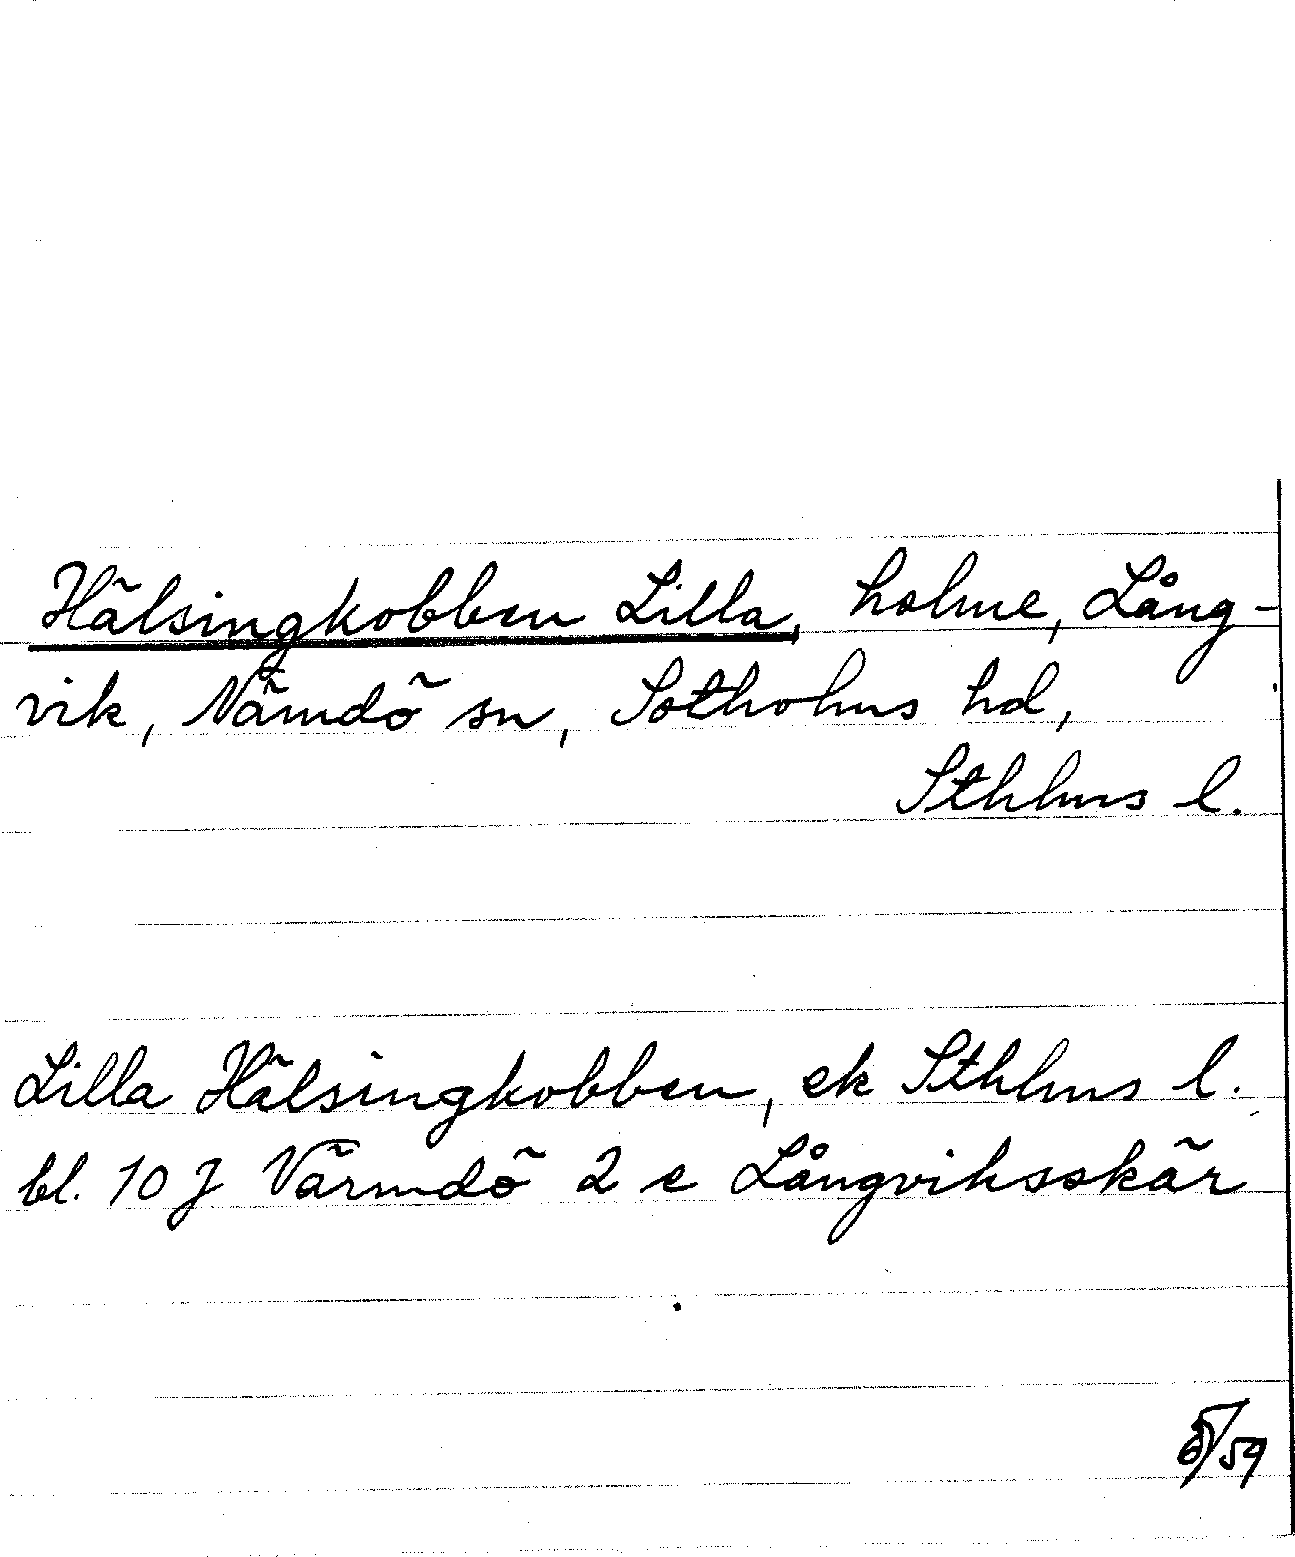 Hälsingkobben Lilla, holme, Lång-
vik, Nämdö sn, Sotholms hd,
Sthlms l.
Lilla Hälsingkobben, ek Sthlms l.
bl. 10 J Värmdö 2 e Långviksskär
/59